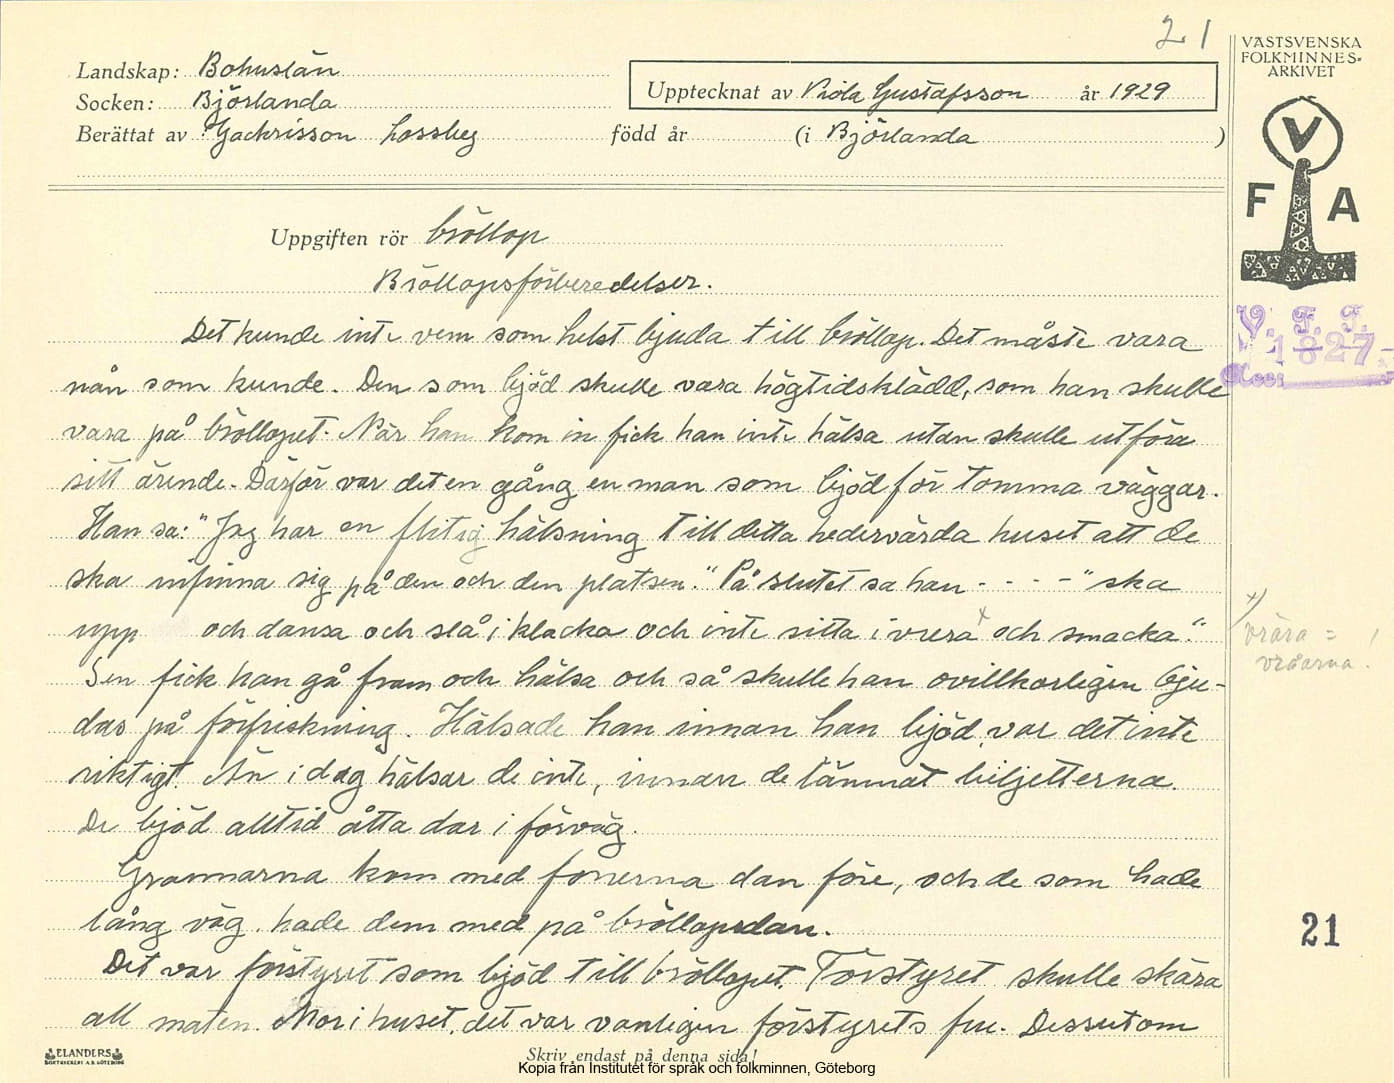 21
VÄSTSVENSKA
FOLKMINNES-
ARKIVET
Landskap: Bohuslän
Socken: Björlanda
Upptecknat av Viola Gustafsson år 1929
Berättat av Zackrisson Lossby född år (i Björlanda )
V
F A
Uppgiften rör bröllop
Bröllopsförberedelser.
V. F. F.
1827
Det kunde inte vem som helst bjuda till bröllop. Det måste vara
nån som kunde. Den som bjöd skulle vara högtidsklädd, som han skulle
vara på bröllopet. När han kom in fick han inte hälsa utan skulle utföra
sitt ärende. Därför var det en gång en man som bjöd för tomma väggar.
Han sa: "Jag har en flitig hälsning till detta hedervärda huset att de
ska infinna sig på den och den platsen." På slutet sa han - - - - "ska
upp och dansa och slå i klacka och inte sitta i vrera x och smacka."
x/ vråra =
vråarna.
Sen fick han gå fram och hälsa och så skulle han ovillkorligen bju-
das på förfriskning. Hälsade han innan han bjöd, var det inte
riktigt. Än i dag hälsar de inte, innan de lämnat biljetterna.
De bjöd alltid åtta dar i förväg.
Grannarna kom med fönerna dan före, och de som hade
lång väg hade dem med på bröllopsdan.
21
Det var förstyret som bjöd till bröllopet. Förstyret skulle skära
all maten. Mor i huset, det var vanligen förstyrets fru. Dessutom
ELANDERS
BOKTRYCKERI A.B. GÖTEBORG
Skriv endast på denna sida!
Kopia från Institutet för språk och folkminnen, Göteborg